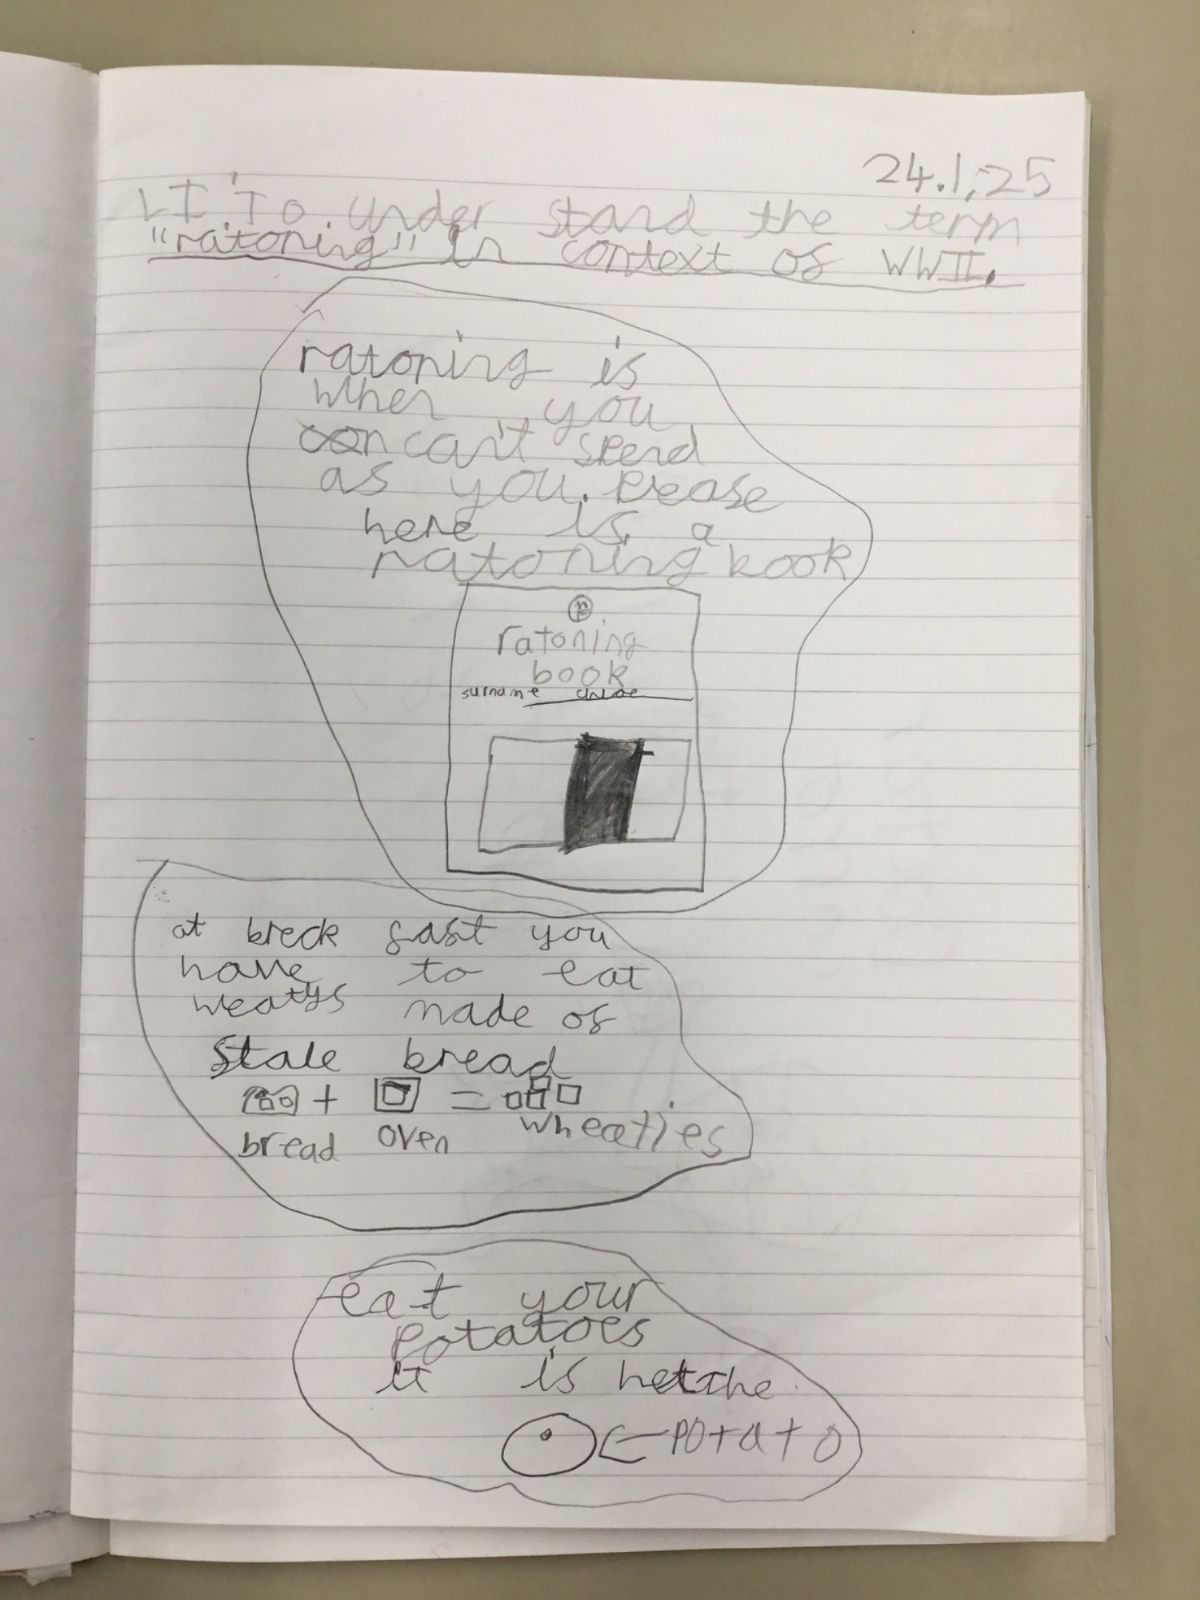 24.1.25
LI To under stand the term
"ratoning" in context of WWII.
ratoning is
when you
can't spend
as you. please
here is a
ratoning book
ratoning
book
surname
at breck fast you
have to eat
weatys made of
stale bread
+ =
bread oven wheaties
eat your
potatoes
it is
potato